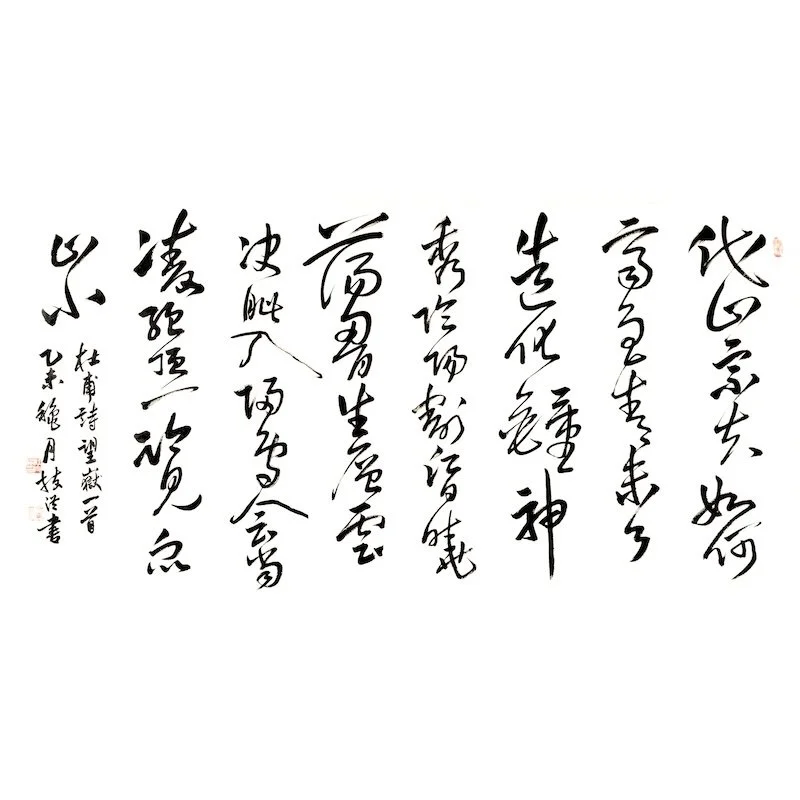 岱宗夫如何
齊魯青未了
造化鍾神
秀陰陽割昏曉
蕩胸生層雲
決眦入歸鳥會當
凌絕頂一覽眾
山小
杜甫詩望嶽一首
乙未龝月書